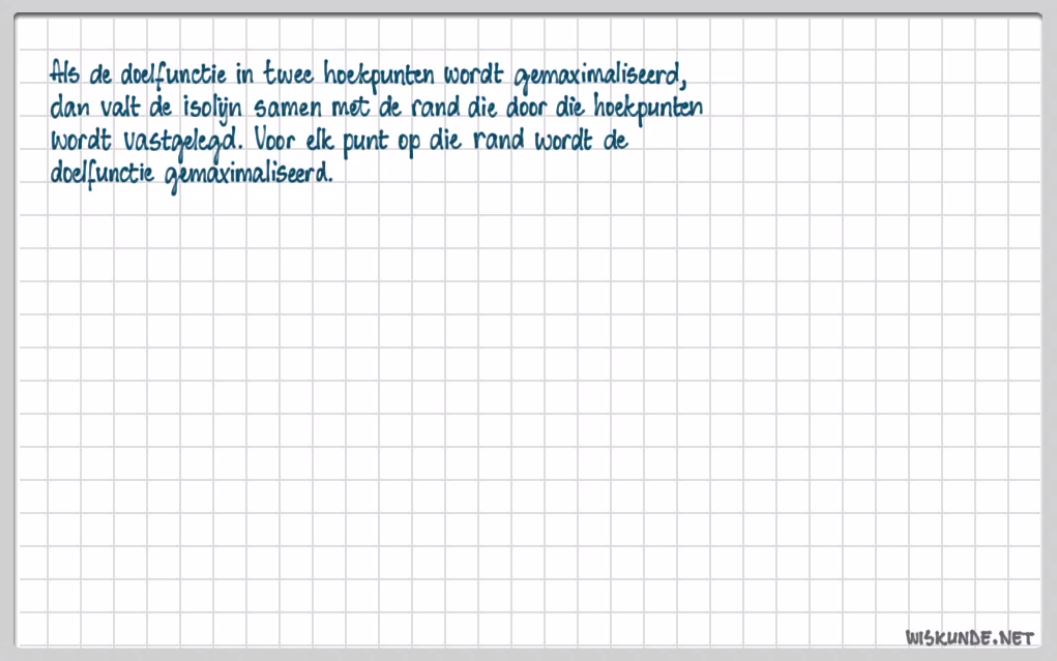 Als de doelfunctie in twee hoekpunten wordt gemaximaliseerd,
dan valt de isolijn samen met de rand die door die hoekpunten
wordt vastgelegd. Voor elk punt op die rand wordt de
doelfunctie gemaximaliseerd.
WISKUNDE.NET